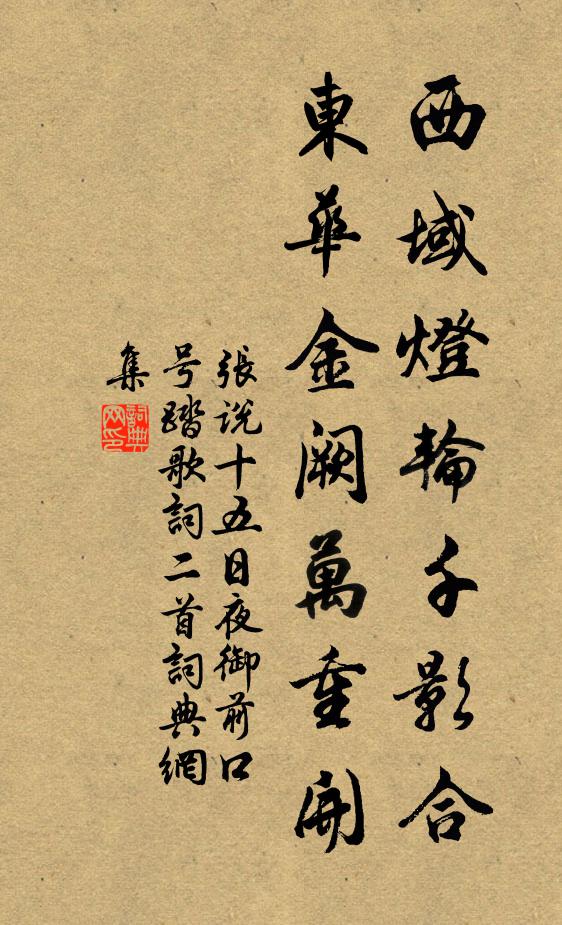 西域燈輪千影合
東華金闕萬重開
張説十五日夜御前口
号踏歌詞二首詞典網
集
詞典網印